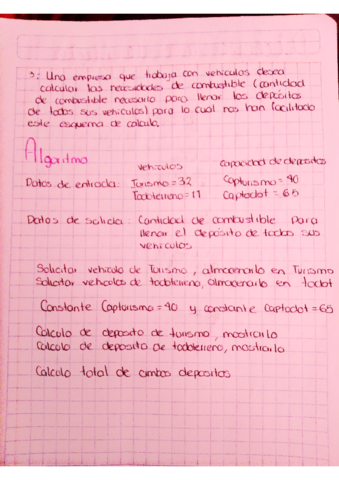 3: Una empresa que trabaja con vehiculos desea
calcular las necesidades de combustible (cantidad
de combustible necesario para llenar los depósitos
de todos sus vehiculos) para lo cual nos han facilitado
este esquema de calculo.
Algoritmo
vehiculos capacidad de depositos
Datos de entrada: Turismo = 32 Capturismo = 40
Todoterreno = 11 Captodot = 65
Datos de salida: Cantidad de combustible para
llenar el depósito de todos sus
vehiculos
Solicitar vehiculo de Turismo, almacenarlo en Turismo
Solicitar vehiculos de todoterreno, almacenarlo en todot
Constante Capturismo = 40 y constante Captodot = 65
Calculo de deposito de turismo, mostrarlo
Calculo de deposito de todoterreno, mostrarlo
Calculo total de ambos depositos